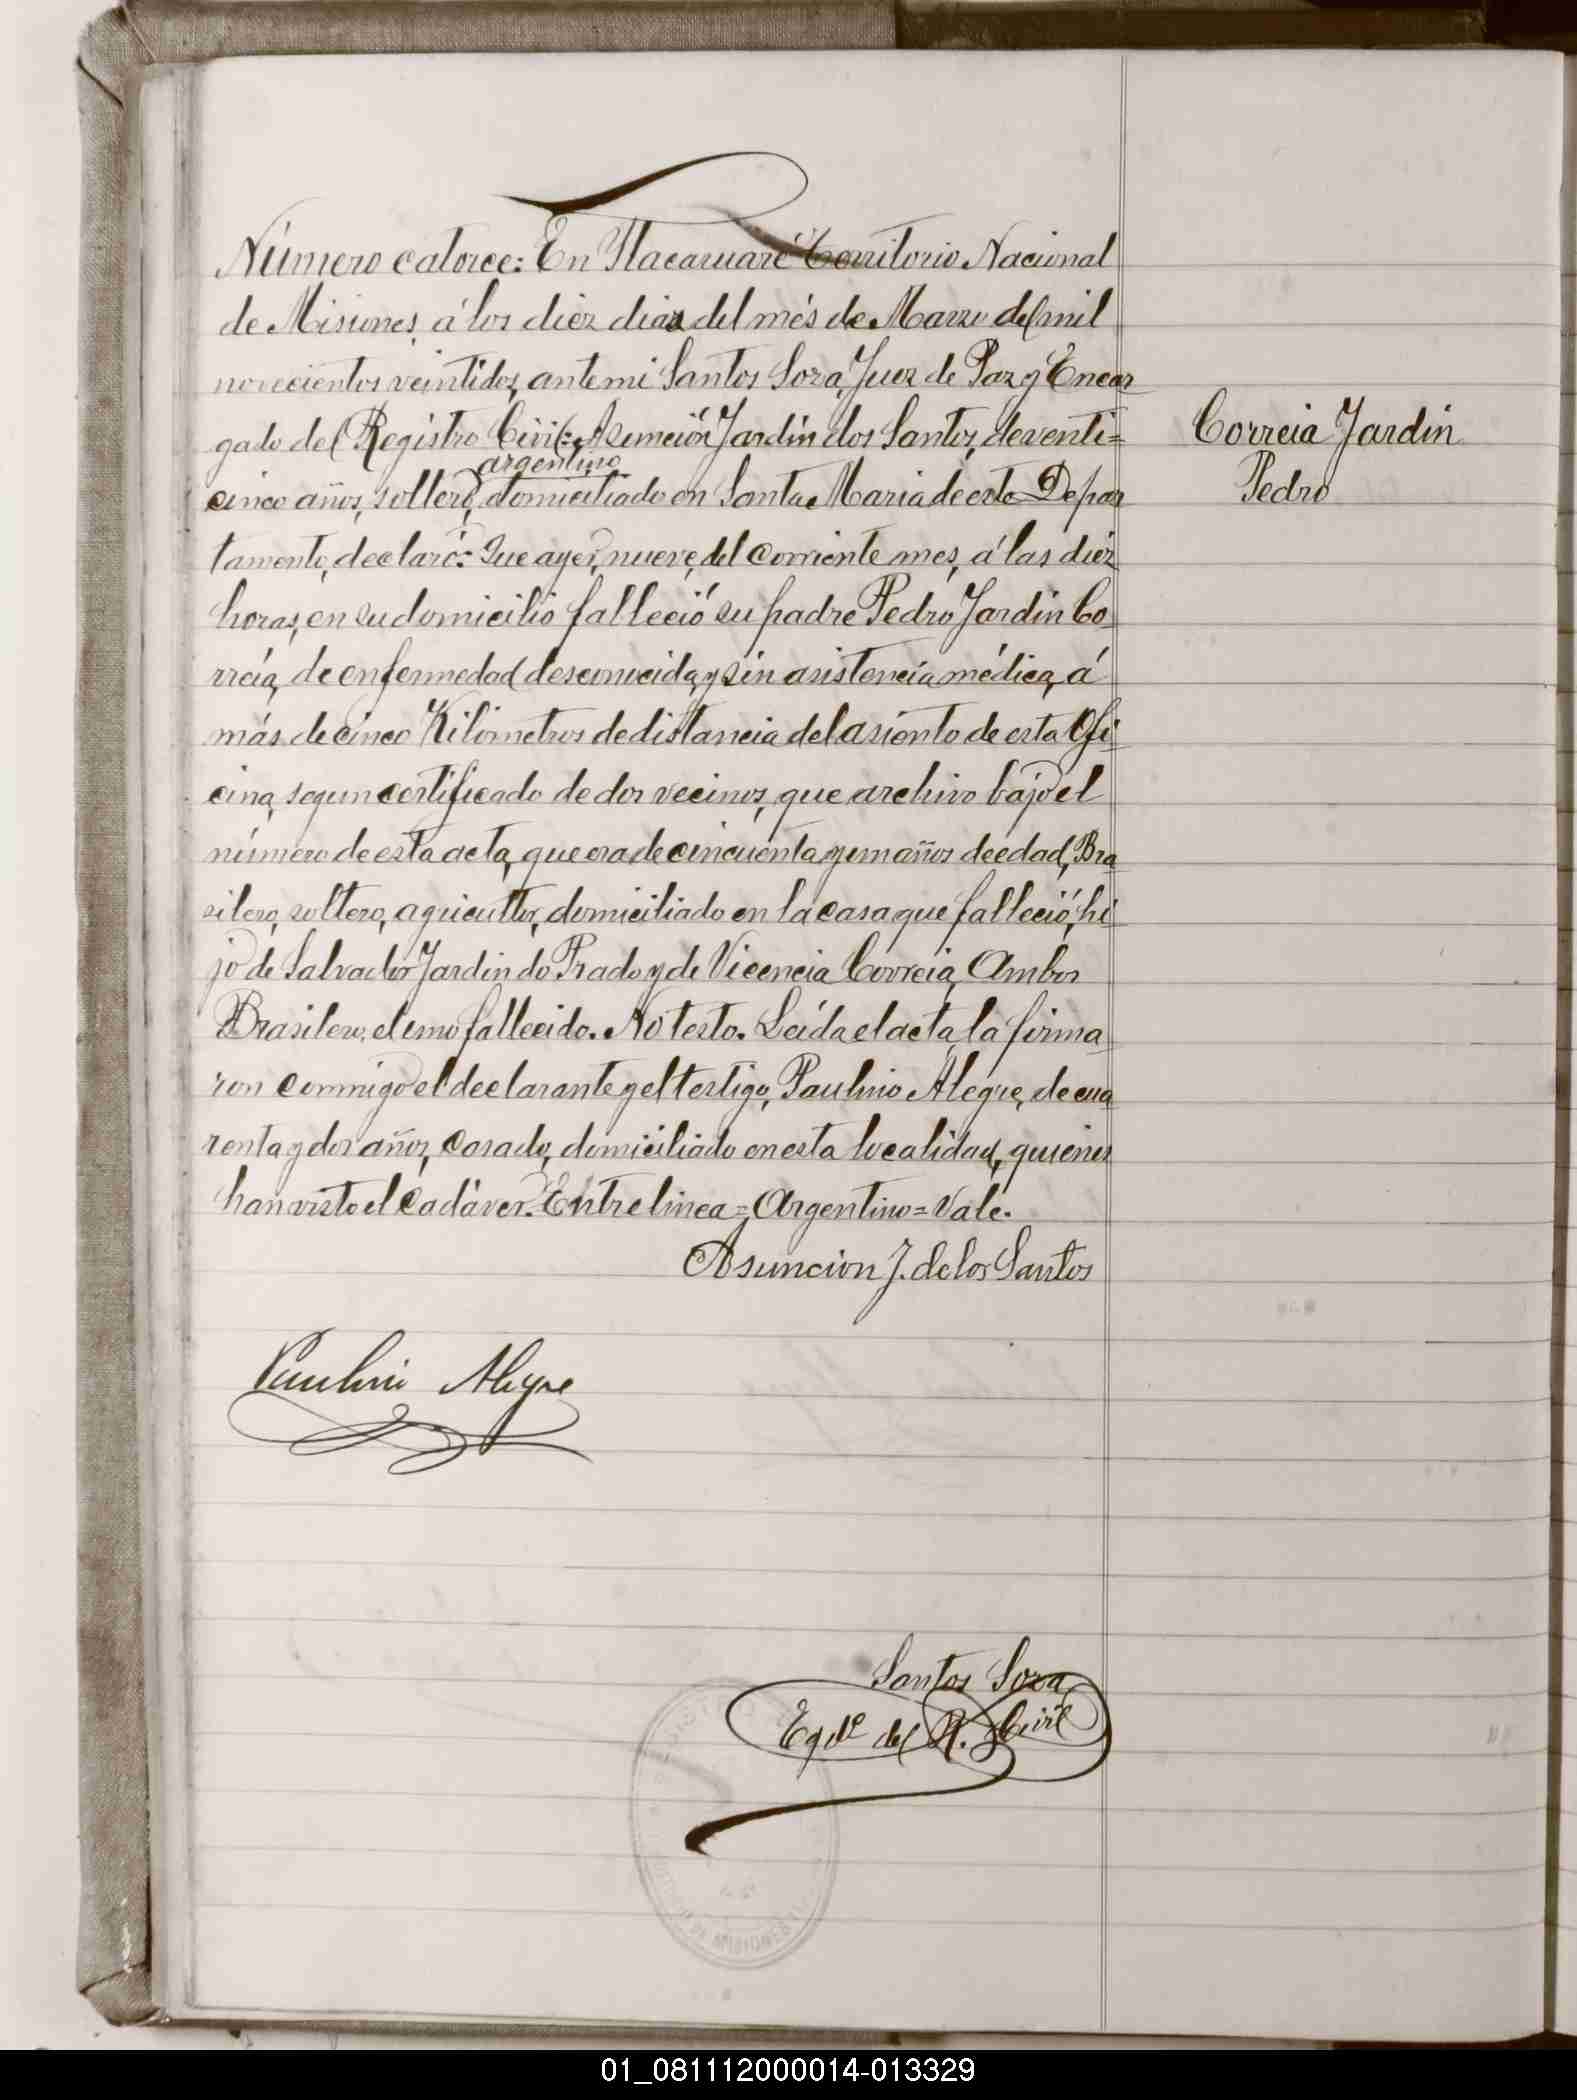 Número catorce: En Itacaruaré Territorio Nacional
de Misiones, á los diez dias del més de Marzo del mil
novecientos veintidos, ante mi Santos Soza, Juez de Paz y Encar
gado del Registro Civil: Asunción Jardin dos Santos, de venti=
argentino
cinco años, soltero, domiciliado en Santa Maria de este Depar
tamento, declaró: Que ayer, nueve, del corriente mes, á las diez
horas, en su domicilio falleció su padre Pedro Jardin Co
rreia, de enfermedad desconocida, y sin asistencia médica, á
más de cinco Kilómetros de distancia del asiento de esta Ofi
cina, segun certificado de dos vecinos, que archivo bajo el
número de esta acta, que era de cincuenta y un años de edad, Bra
silero, soltero, agricultor, domiciliado en la casa que falleció, hi
jo de Salvador Jardin do Prado y de Vicencia Correia, Ambos
Brasilero, el uno fallecido. No testo. Leída el acta, la firma
ron conmigo el declarante y el testigo, Paulino Alegre, de cua
renta y dos años, Casado, domiciliado en esta localidad, quienes
han visto el Cadáver. Entrelinea = Argentino = Vale.
Asuncion J. de los Santos
Paulino Alegre
Santos Soza
Egdo del R. Civil
Correia Jardin
Pedro
MISIONES
01_081112000014-013329